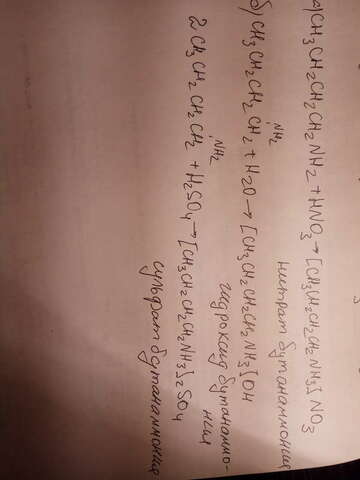 а) CH3CH2CH2CH2NH2 + HNO3 → [CH3CH2CH2CH2NH3]NO3
нитрат бутанаммония
NH2
б) CH3CH2CH2CH2 + H2O → [CH3CH2CH2CH2NH3]OH
гидроксид бутанаммо-
ния
NH2
2 CH3CH2CH2CH2 + H2SO4 → [CH3CH2CH2CH2NH3]2SO4
сульфат бутанаммония